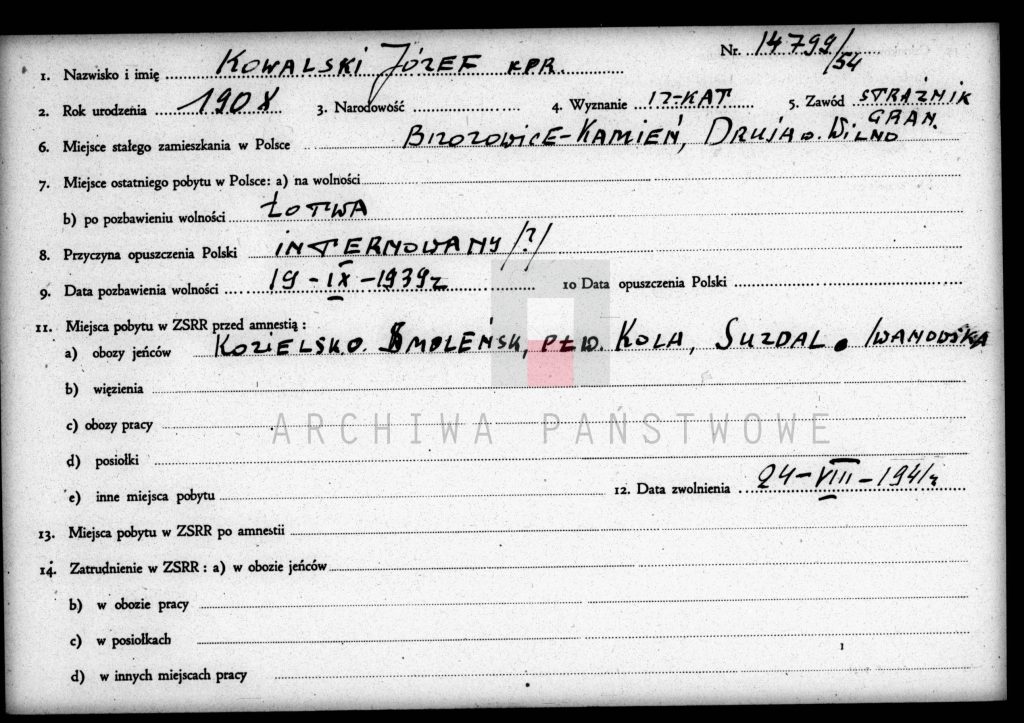 Nr. 14799/54
1. Nazwisko i imię KOWALSKI JÓZEF KPR.
2. Rok urodzenia 190X 3. Narodowość 4. Wyznanie RZ-KAT 5. Zawód STRAŻNIK GRAN.
6. Miejsce stałego zamieszkania w Polsce BRZOZOWICE-KAMIEŃ, DRUJA o. WILNO
7. Miejsce ostatniego pobytu w Polsce: a) na wolności
b) po pozbawieniu wolności ŁOTWA
8. Przyczyna opuszczenia Polski INTERNOWANY /?/
9. Data pozbawienia wolności 19-IX-1939r 10 Data opuszczenia Polski
11. Miejsca pobytu w ZSRR przed amnestią :
a) obozy jeńców KOZIELSK o. SMOLEŃSK, PŁW. KOLA, SUZDAL o. IWANOWSKA
b) więzienia
c) obozy pracy
d) posiołki
e) inne miejsca pobytu 12. Data zwolnienia 24-VIII-1941r
13. Miejsca pobytu w ZSRR po amnestii
14. Zatrudnienie w ZSRR : a) w obozie jeńców
b) w obozie pracy
c) w posiołkach
1
d) w innych miejscach pracy
ARCHIWA PAŃSTWOWE